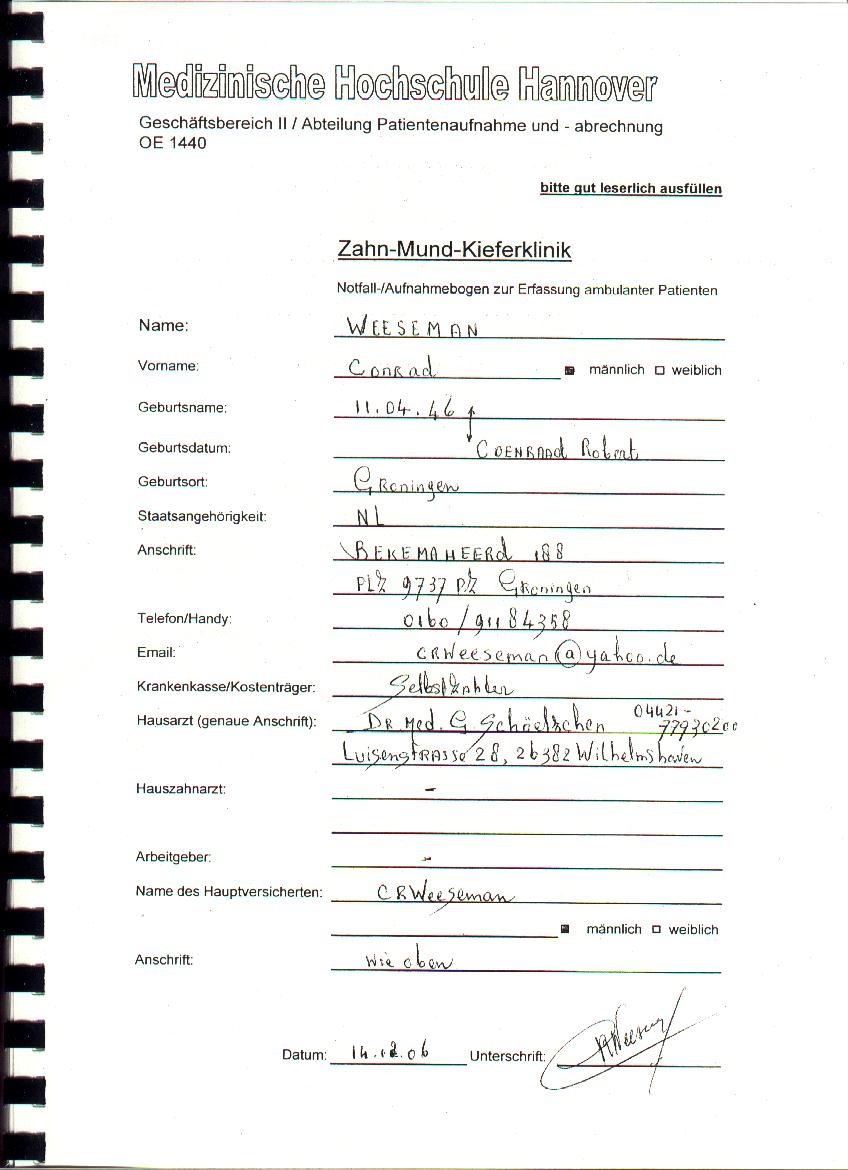 Medizinische Hochschule Hannover
Geschäftsbereich II / Abteilung Patientenaufnahme und - abrechnung
OE 1440
bitte gut leserlich ausfüllen
Zahn-Mund-Kieferklinik
Notfall-/Aufnahmebogen zur Erfassung ambulanter Patienten
Name: WEESEMAN
Vorname: Conrad männlich weiblich
Geburtsname: 11.04.46
Geburtsdatum: COENRAAD Robert
Geburtsort: Groningen
Staatsangehörigkeit: NL
Anschrift: BEKEMAHEERD 188
PLZ 9737 PZ Groningen
Telefon/Handy: 0160/91184358
Email: CRWeeseman@yahoo.de
Krankenkasse/Kostenträger: Selbstzahler
04421-
Hausarzt (genaue Anschrift): DR. Med. G 77930200
LuisenSTRASSe 28, 26382 Wilhelmshaven
Hauszahnarzt: -
Arbeitgeber: -
Name des Hauptversicherten: CRWeeseman
männlich weiblich
Anschrift: wie oben
Datum: 14.12.06 Unterschrift: